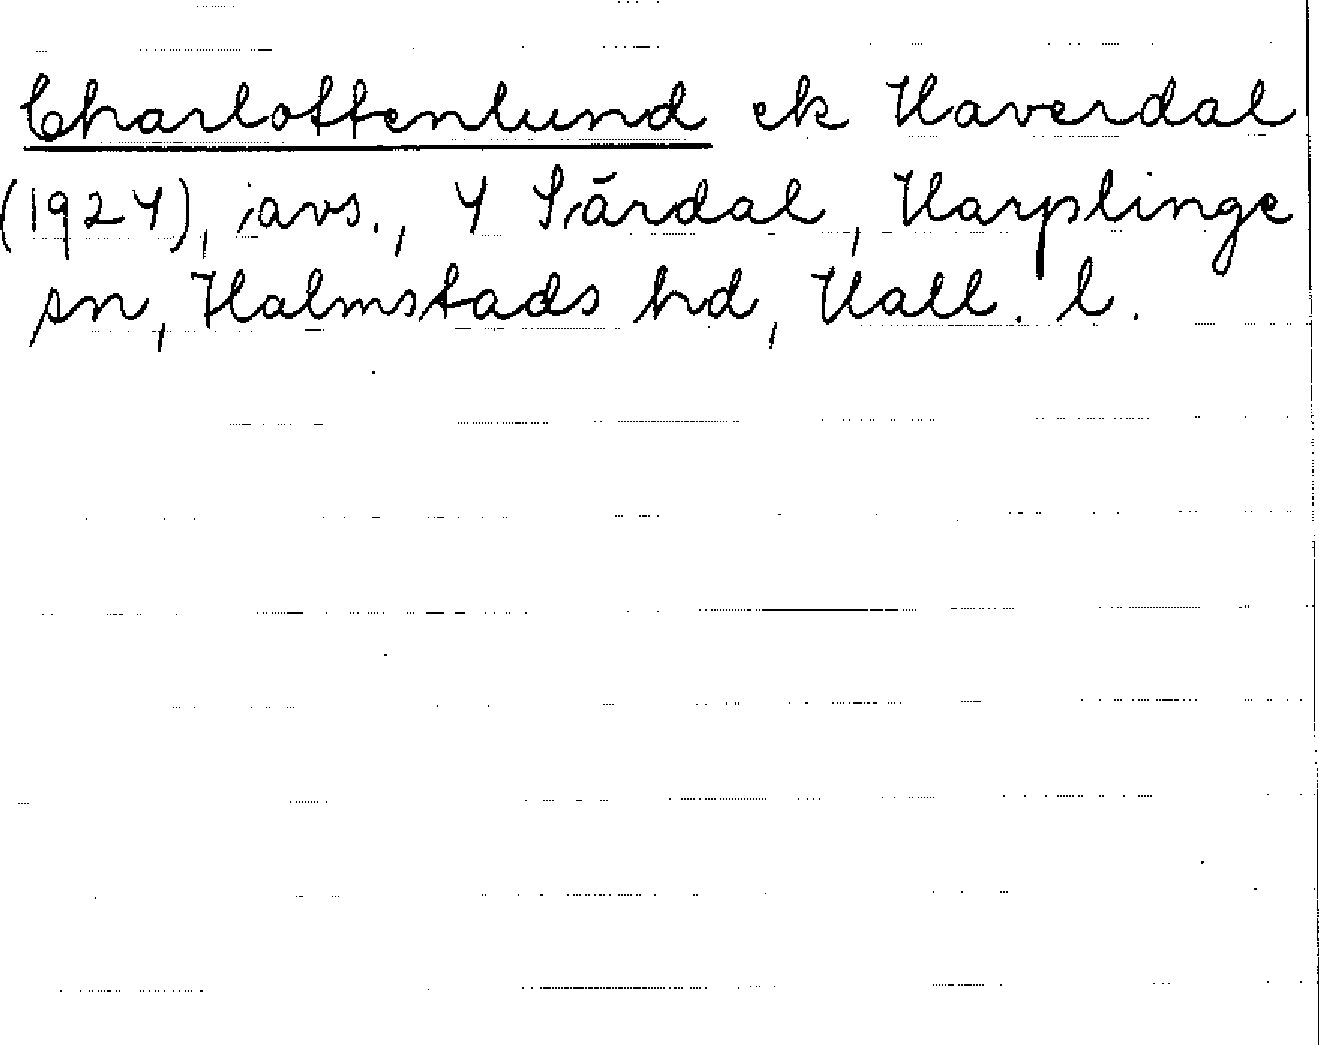 Charlottenlund ek Haverdal
(1924), avs., 4 Särdal, Harplinge
sn, Halmstads hd, Hall. l.